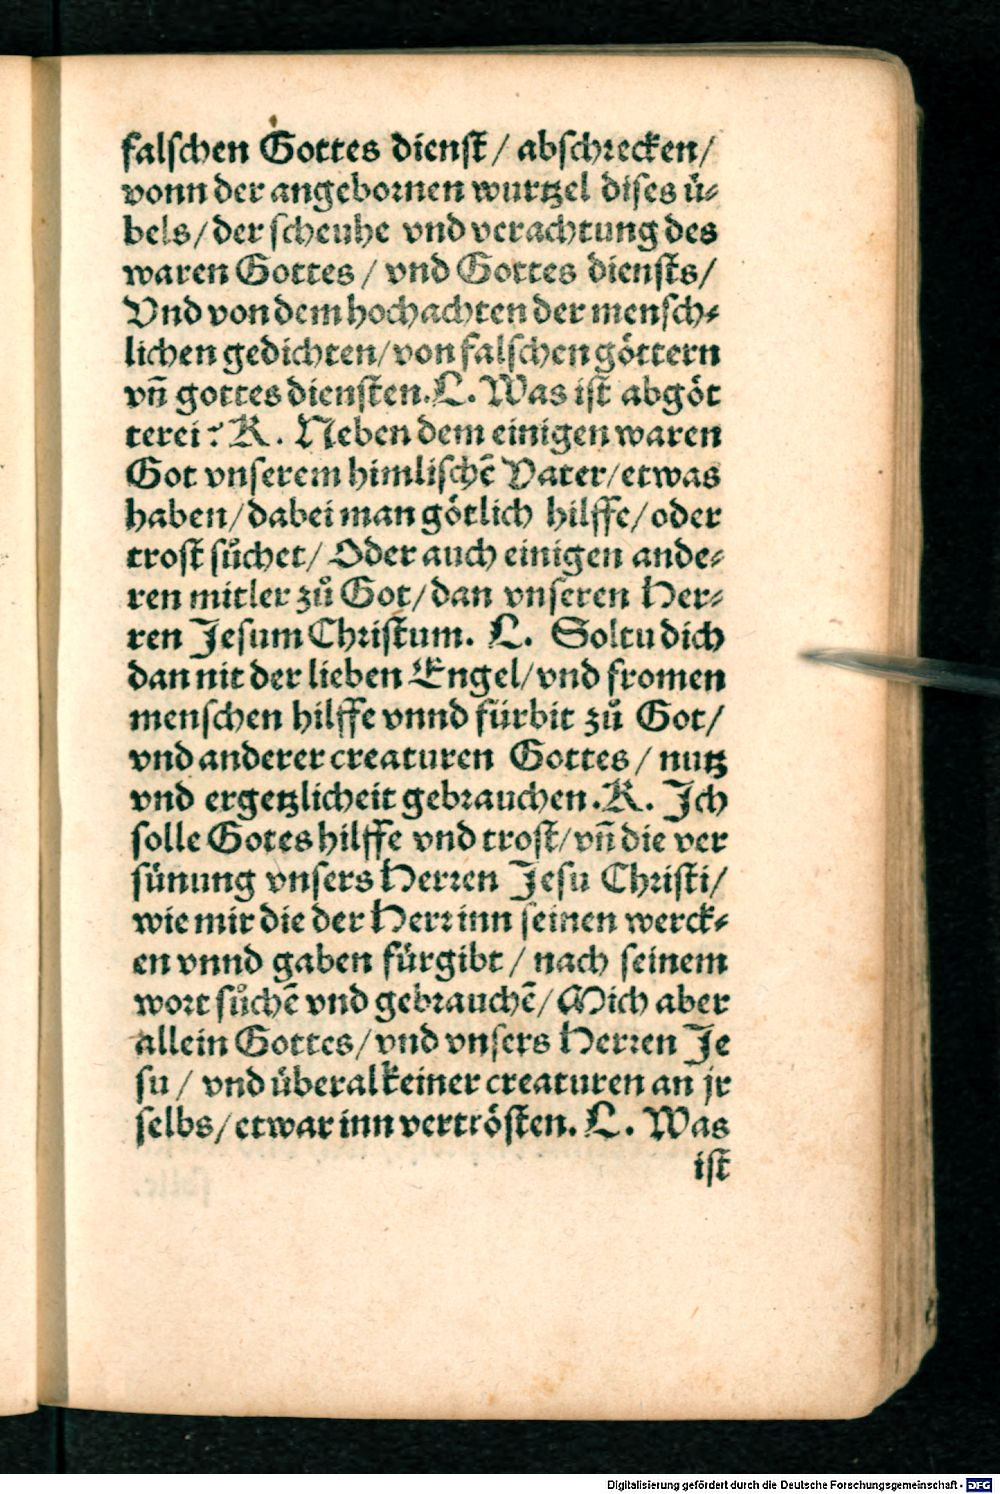 falschen Gottes dienst/ abschrecken/
vonn der angebornen wurtzel dises ü-
bels/ der scheuhe vnd verachtung des
waren Gottes / vnd Gottes diensts/
Vnd von dem hochachten der mensch-
lichen gedichten/ von falschen göttern
vñ gottes diensten. L. Was ist abgöt
terei? K. Neben dem einigen waren
Got vnserem himlischẽ Vater/ etwas
haben/ dabei man götlich hilffe/ oder
trost sůchet/ Oder auch einigen ande-
ren mitler zů Got/ dan vnseren Her-
ren Jesum Christum. L. Soltu dich
dan nit der lieben Engel/ vnd fromen
menschen hilffe vnnd fürbit zů Got/
vnd anderer creaturen Gottes / nutz
vnd ergetzlicheit gebrauchen. K. Ich
solle Gotes hilffe vnd trost/ vñ die ver
sünung vnsers Herren Jesu Christi/
wie mir die der Herr inn seinen werck-
en vnnd gaben fürgibt / nach seinem
wort sůchẽ vnd gebrauchẽ/ Mich aber
allein Gottes/ vnd vnsers Herren Je
su / vnd überal keiner creaturen an jr
selbs/ etwar inn vertrösten. L. Was
ist
Digitalisierung gefördert durch die Deutsche Forschungsgemeinschaft - DFG